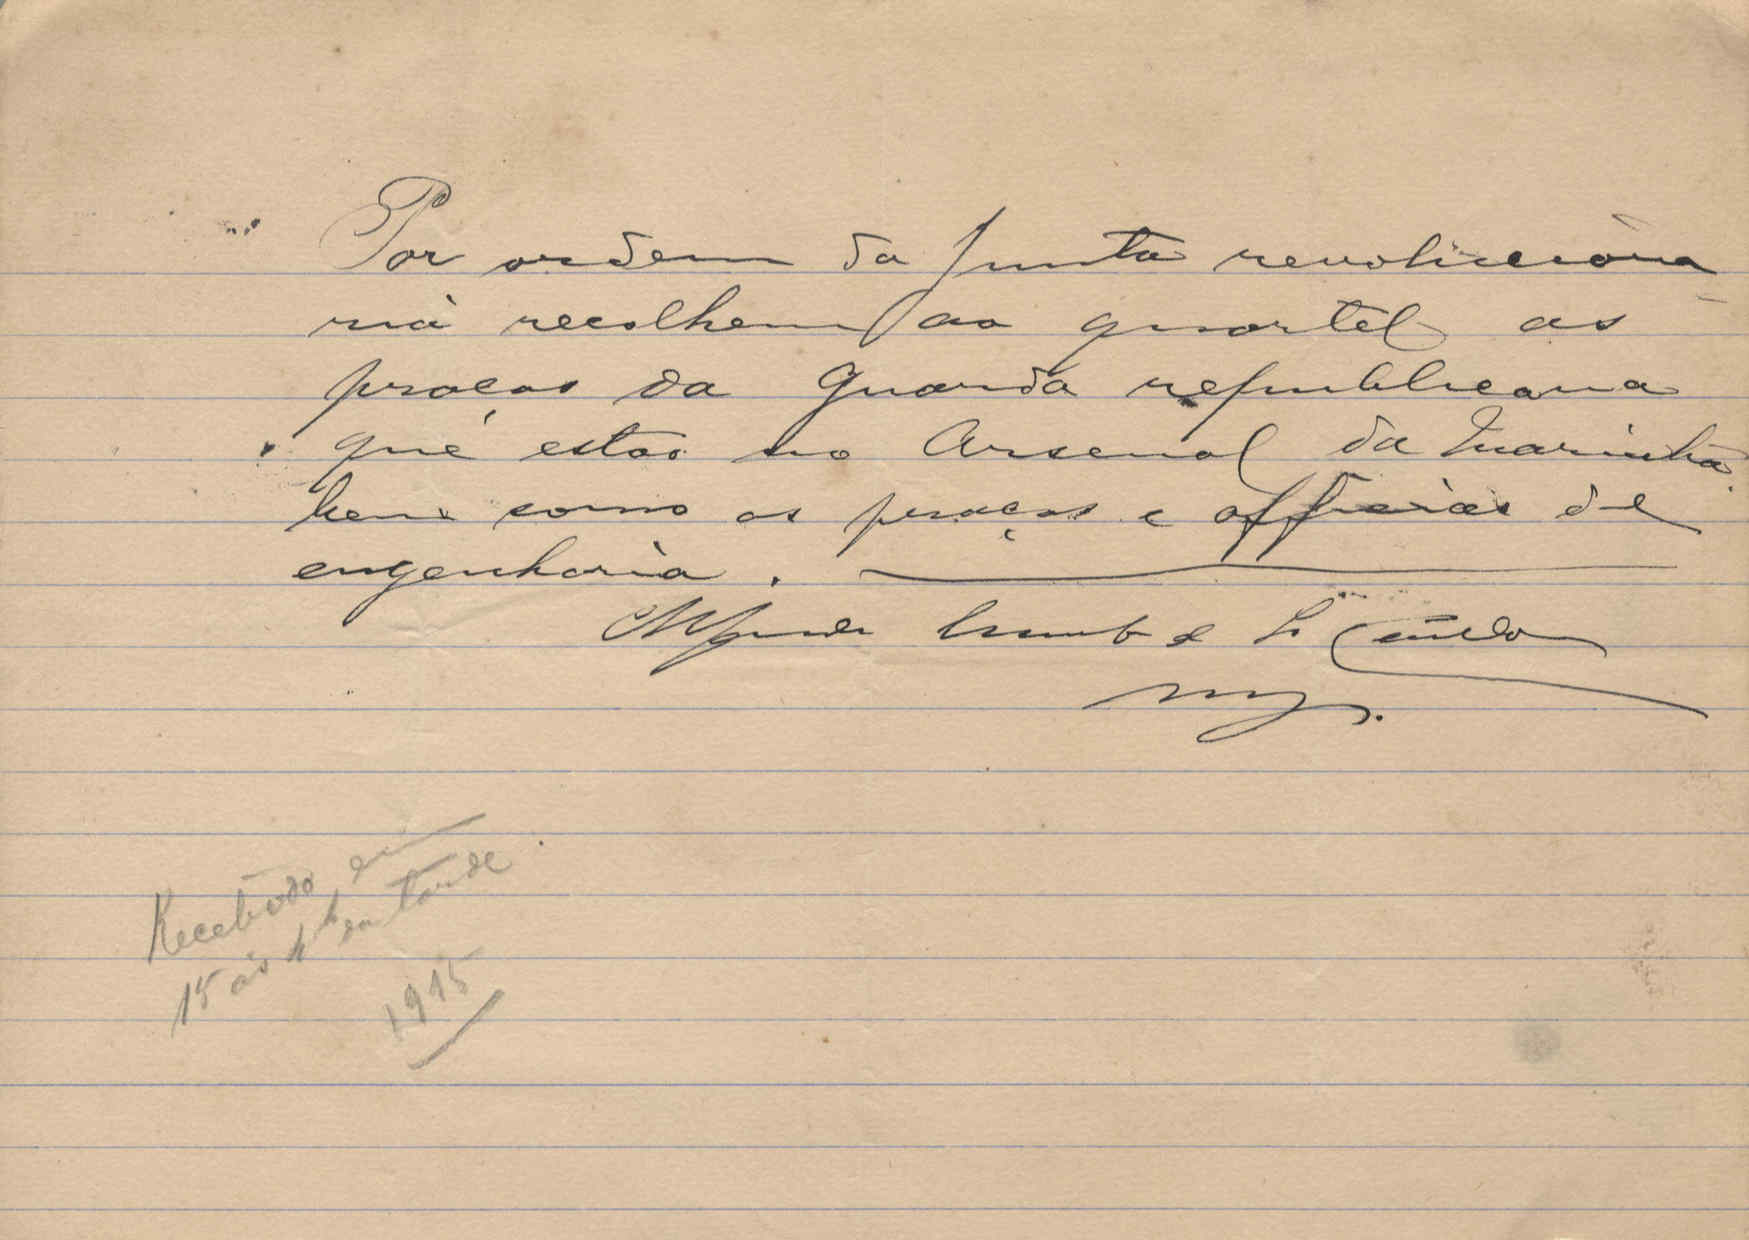 Por ordem da Junta revoluciona-
ria recolhem ao quartel as
praças da Guarda republicana
que estão no Arsenal da Marinha
bem como as praças e officiaes de
engenharia.
Alfredo
maj.
Recebido em
15 ás 4h da tarde
1915